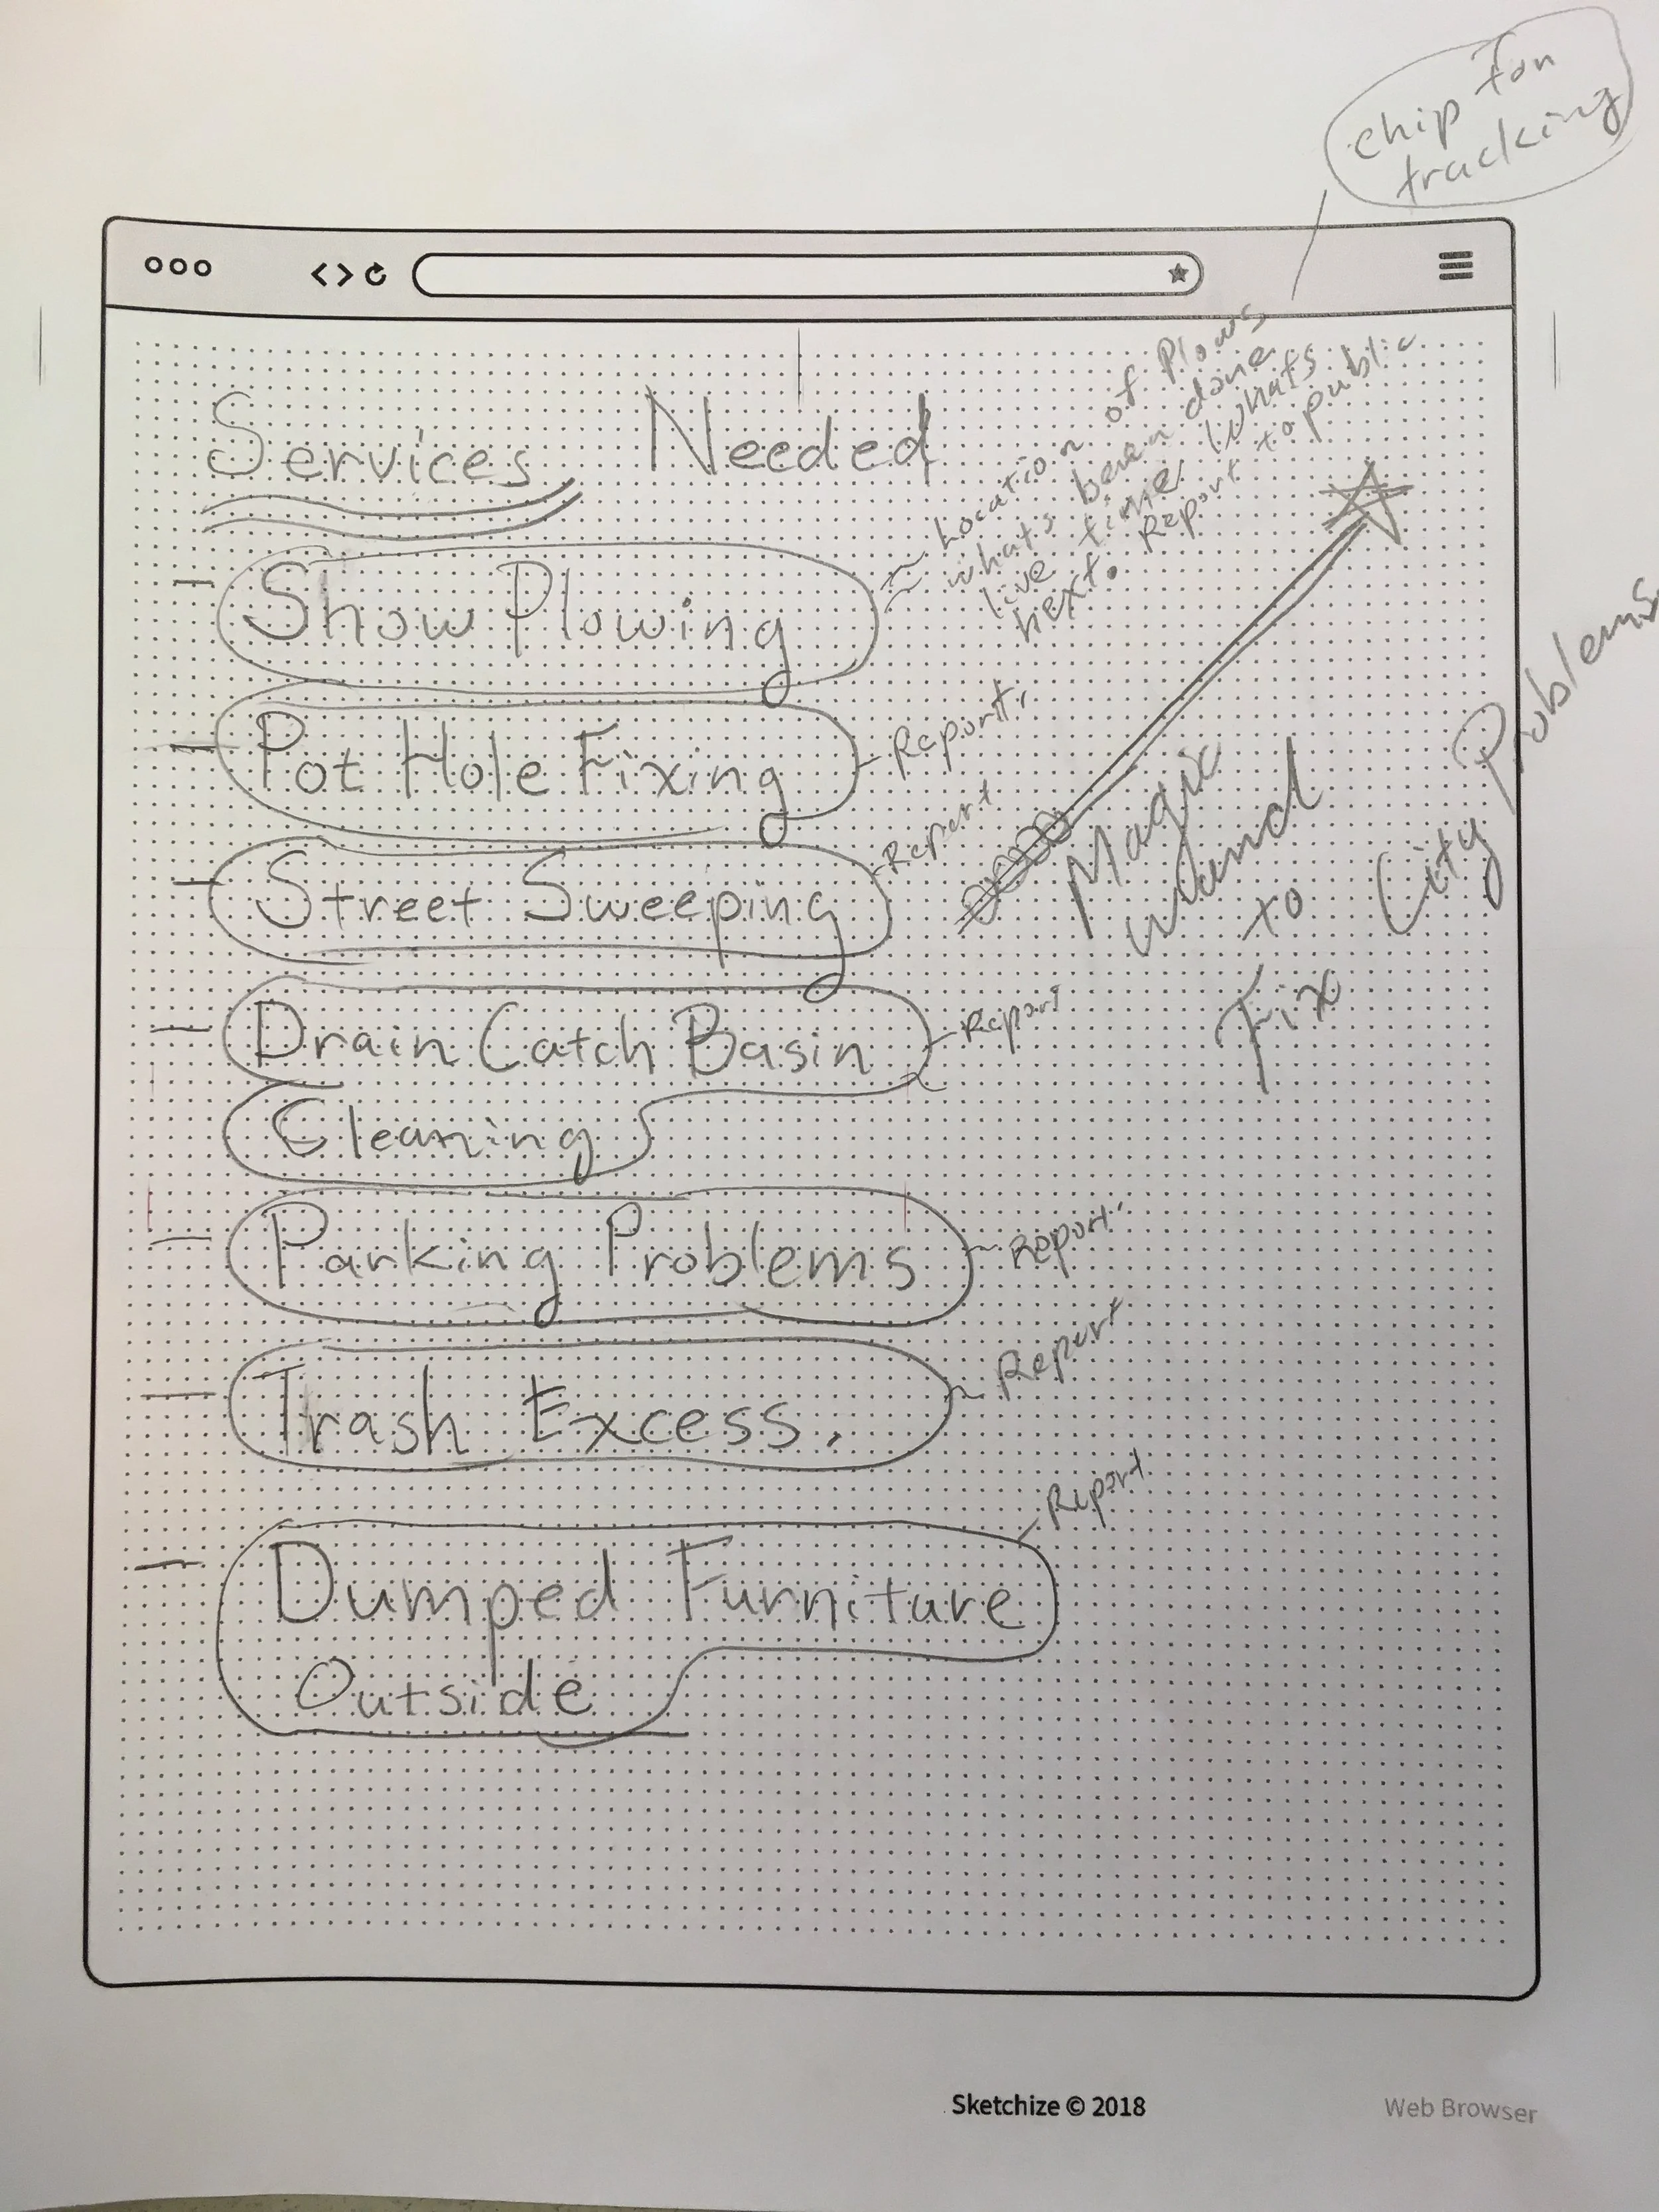 chip for
tracking
Services Needed
Location of Plows
whats been done
live time whats
next. Report to public
- Snow Plowing
- Pot Hole Fixing
Report.
- Street Sweeping
Report
Magic
wand
to
Fix
City
Problems
- Drain Catch Basin
Cleaning
Report
- Parking Problems
Report.
- Trash Excess.
Report
- Dumped Furniture
Outside
Report
Sketchize © 2018
Web Browser